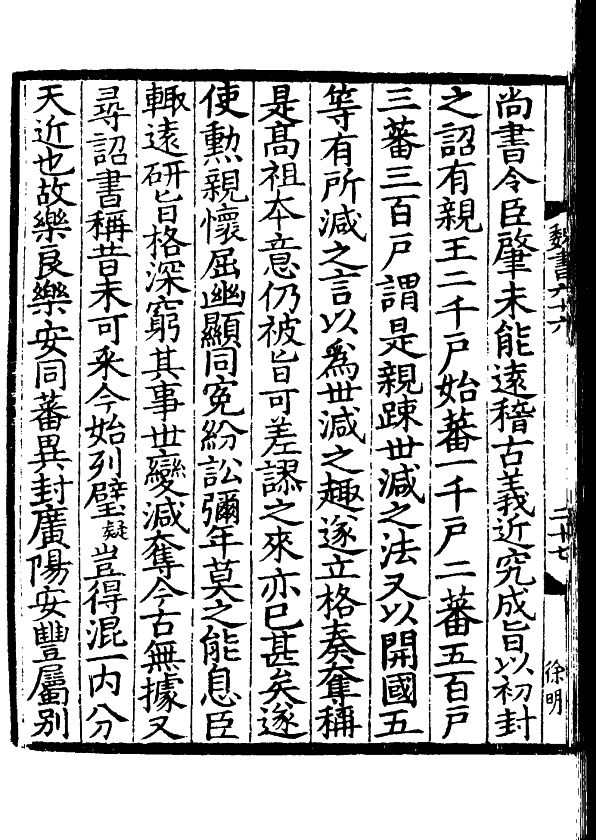 魏書六十六
二十七
徐明
尚書令臣肇未能遠稽古義近究成旨以初封
之詔有親王二千戶始蕃一千戶二蕃五百戶
三蕃三百戶謂是親踈世減之法又以開國五
等有所減之言以爲世減之趣遂立格奏奪稱
是髙祖本意仍被旨可差謬之來亦已甚矣遂
使勲親懷屈幽顯同寃紛訟彌年莫之能息臣
輙遠研旨格深窮其事世變減奪今古無據又
尋詔書稱昔未可采今始列璧疑豈得混一内分
天近也故樂良樂安同蕃異封廣陽安豐屬别